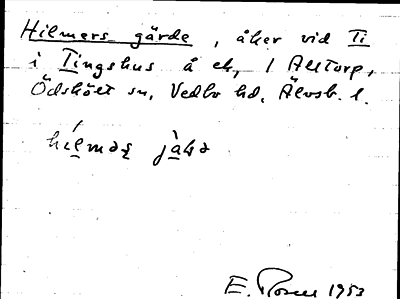 Hilmers gärde, åker vid Ti
i Tingshus å ek, 1 Alltorp,
Ödskölt sn, Vedbo hd, Älvsb. l.
E. Rosen 1953